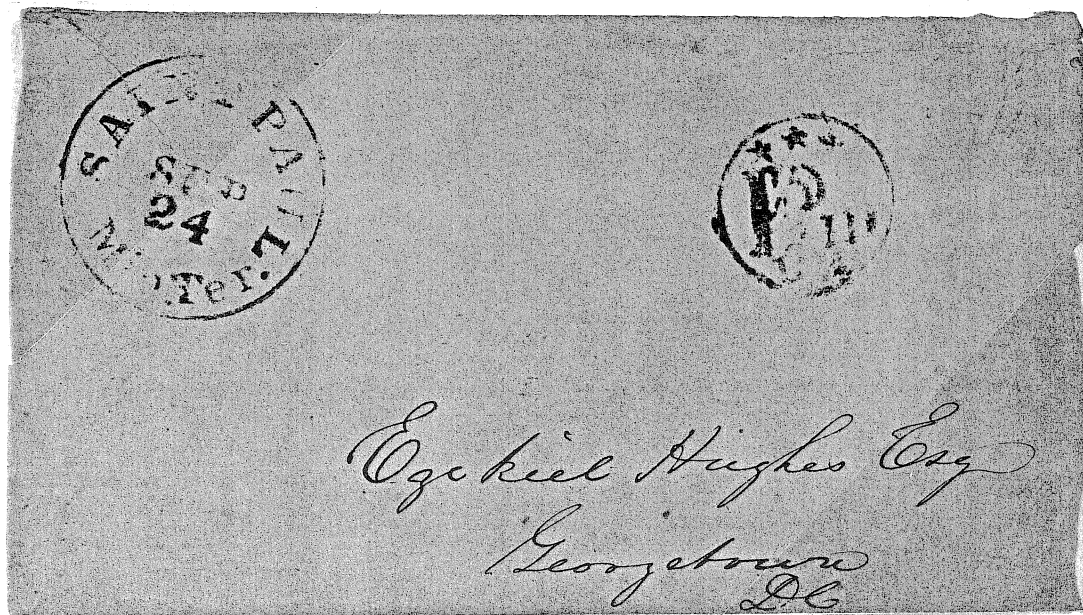 SAINT PAUL
SEP
24
Min. Ter.
***
P
III
Ezekiel Hughes Esq
Georgetown
D.C